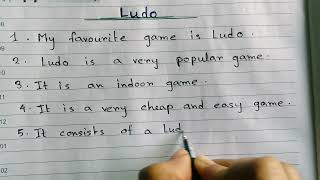 Ludo
1. My favourite game is Ludo.
2. Ludo is a very popular game.
3. It is an indoor game.
4. It is a very cheap and easy game.
5. It consists of a Lud